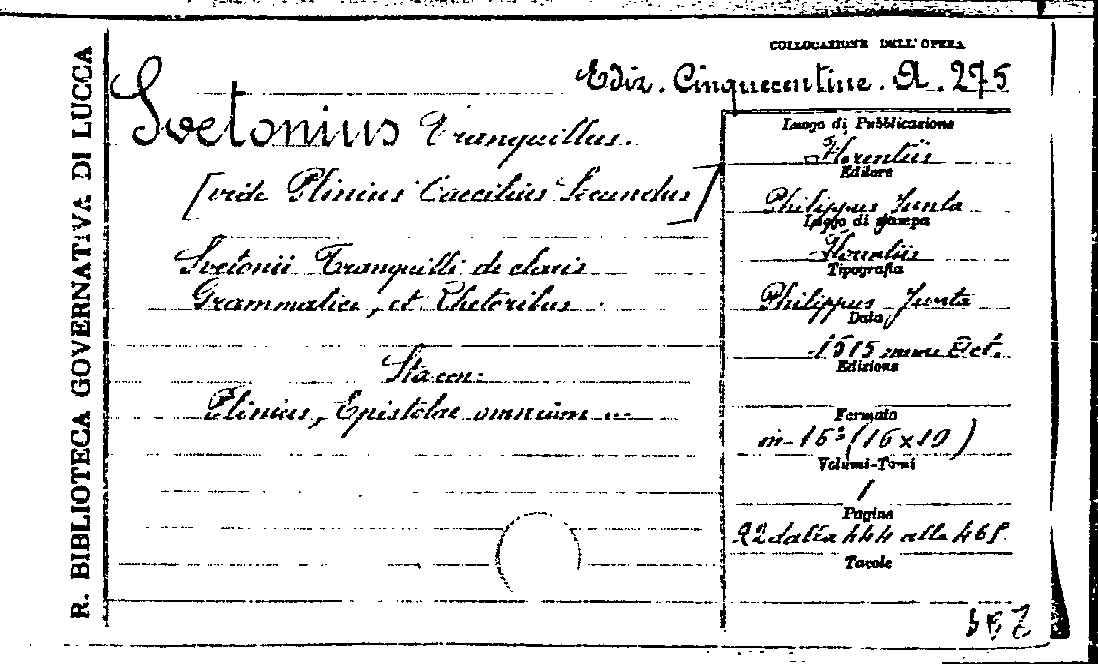 R. BIBLIOTECA GOVERNATIVA DI LUCCA
COLLOCAZIONE DELL'OPERA
Ediz. Cinquecentine. A. 275
Svetonius Tranquillus.
[vide Plinius Caecilius Secundus]
Svetonii Tranquilli de claris
Grammatici, et Rhetoribus
Sta con:
Plinius, Epistolae omnium ...
Luogo di Pubblicazione
Florentiis
Editore
Philippus Junta
Luogo di stampa
Florentiis
Tipografia
Philippus Junta
Data
1515 mense Oct.
Edizione
Formato
in-16° (16x10)
Volumi-Tomi
1
Pagine
22 dalla 444 alla
Tavole